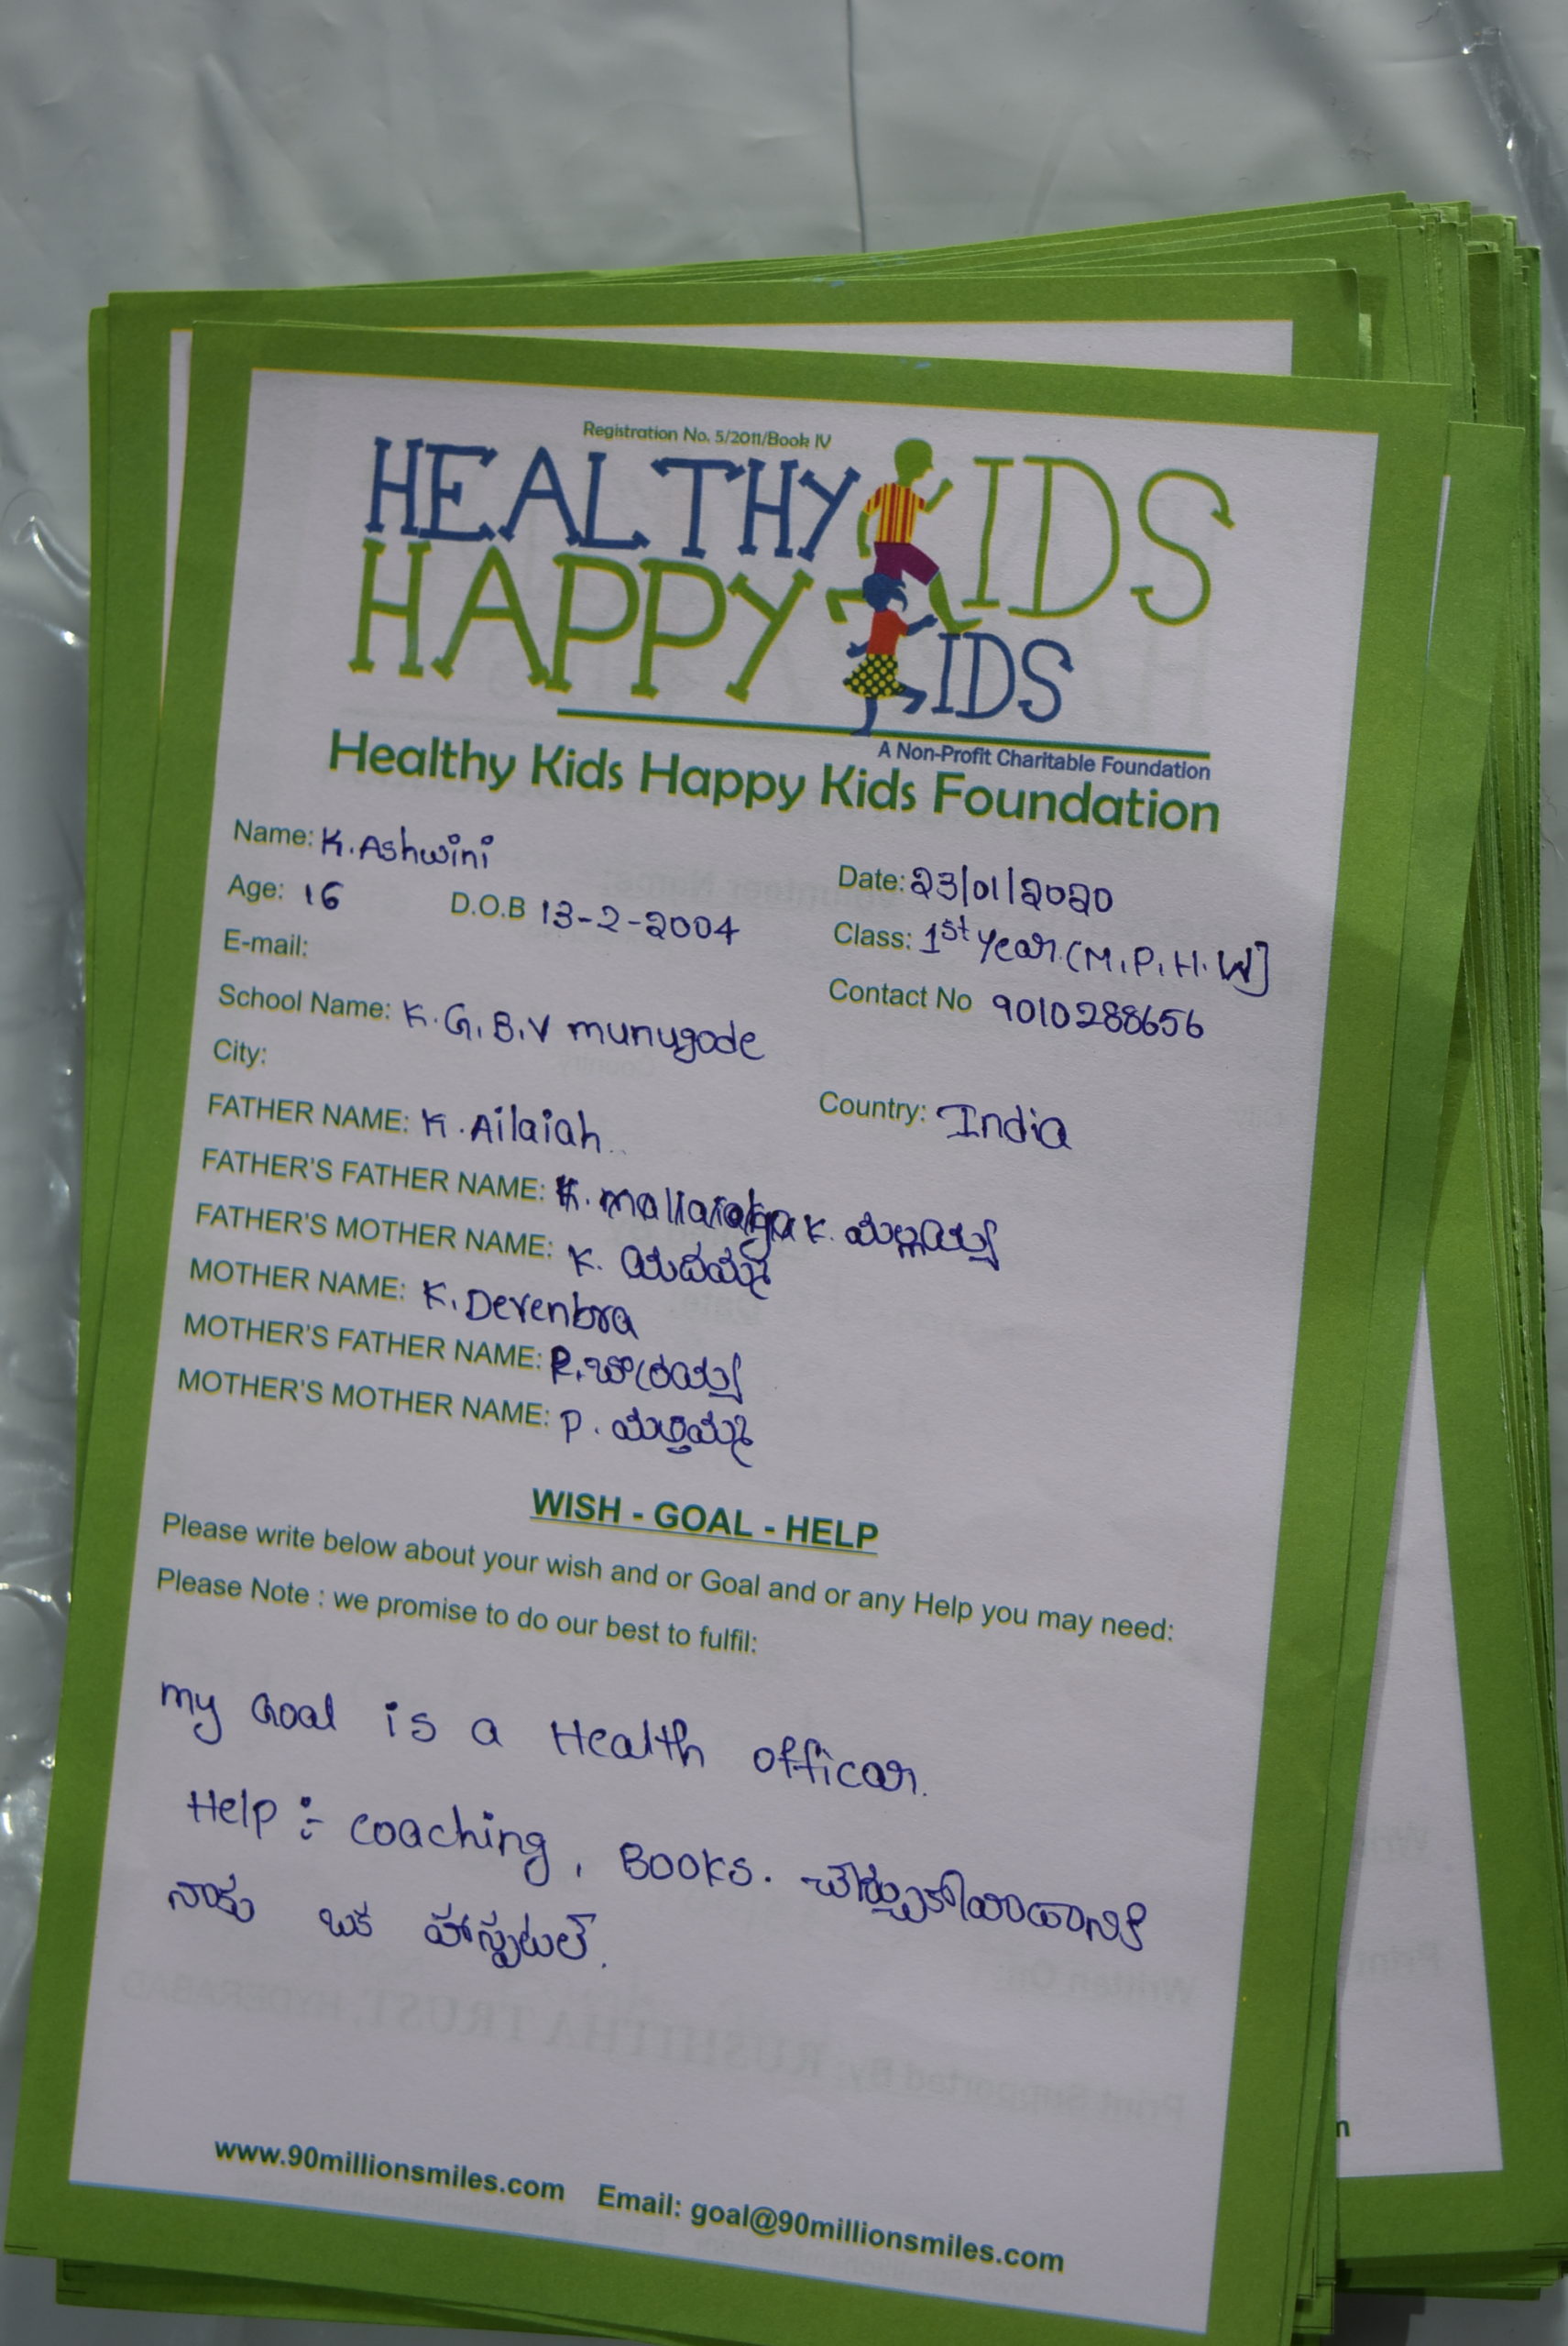 Registration No. 5/2011/Book IV
HEALTHY KIDS
HAPPY KIDS
A Non-Profit Charitable Foundation
Healthy Kids Happy Kids Foundation
Name: K. Ashwini
Date: 23/01/2020
Age: 16 D.O.B 13-2-2004
Class: 1st year (M.P.H.W]
E-mail:
Contact No 9010288656
School Name: K.G.B.V munugode
City:
Country: India
FATHER NAME: K. Ailaiah
FATHER'S FATHER NAME: K. K. మల్లయ్య
FATHER'S MOTHER NAME: K. యదమ్మ
MOTHER NAME: K. Devenbra
MOTHER'S FATHER NAME: P.
MOTHER'S MOTHER NAME: P.
WISH - GOAL - HELP
Please write below about your wish and or Goal and or any Help you may need:
Please Note : we promise to do our best to fulfil:
my Goal is a Health officar.
Help :- coaching, Books.
నాకు ఒక హాస్పటల్.
www.90millionsmiles.com Email: goal@90millionsmiles.com